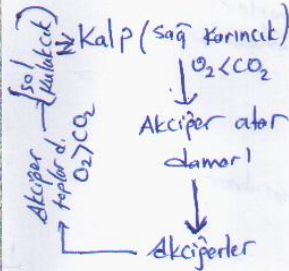 Kalp (Sağ Karıncık)
O₂<CO₂
Akciğer atar
damarı
Akciğerler
Akciğer
toplar d.
O₂>CO₂
(sol
kulakcık)